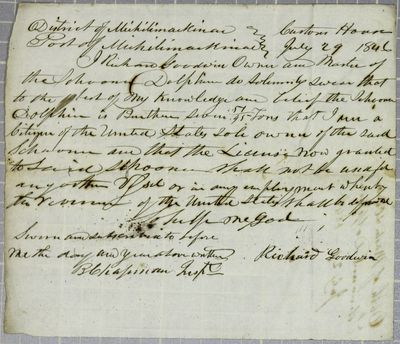 District of Michilimackinac Custom House
Port of Michilimackinac July 29
I Richard Goodwin Owner and Master of
the Schooner Dolphin do Solemnly swear that
to the best of My Knowledge and belief the Schooner
Dolphin is Burthen Seven Tons that I am a
Citizen of the United States sole owner of the said
Schooner and that the License now granted
to said Schooner shall not be used for
any other Vessel or in any employment whereby
the revenue of the United States shall be
help me God
Sworn and subscribed to before
me the day and year above written Richard Goodwin
B Chapman Inspt